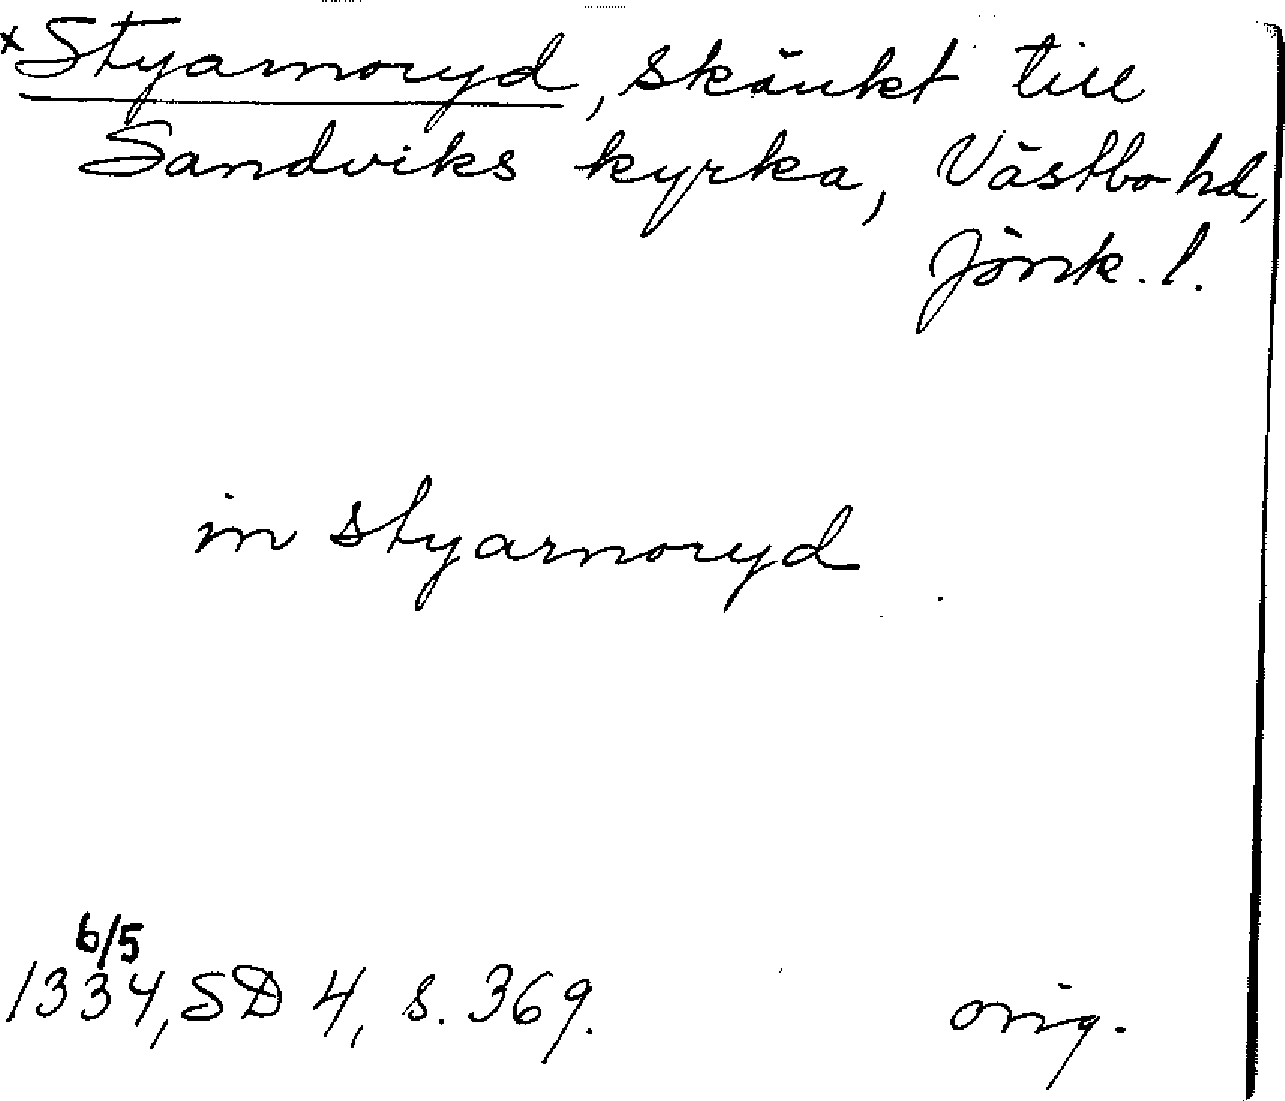 x Styarnoryd, skänkt till
Sandviks kyrka, Västbo hd,
Jönk. l.
in styarnoryd
6/5
1334, SD 4, s. 369. orig.